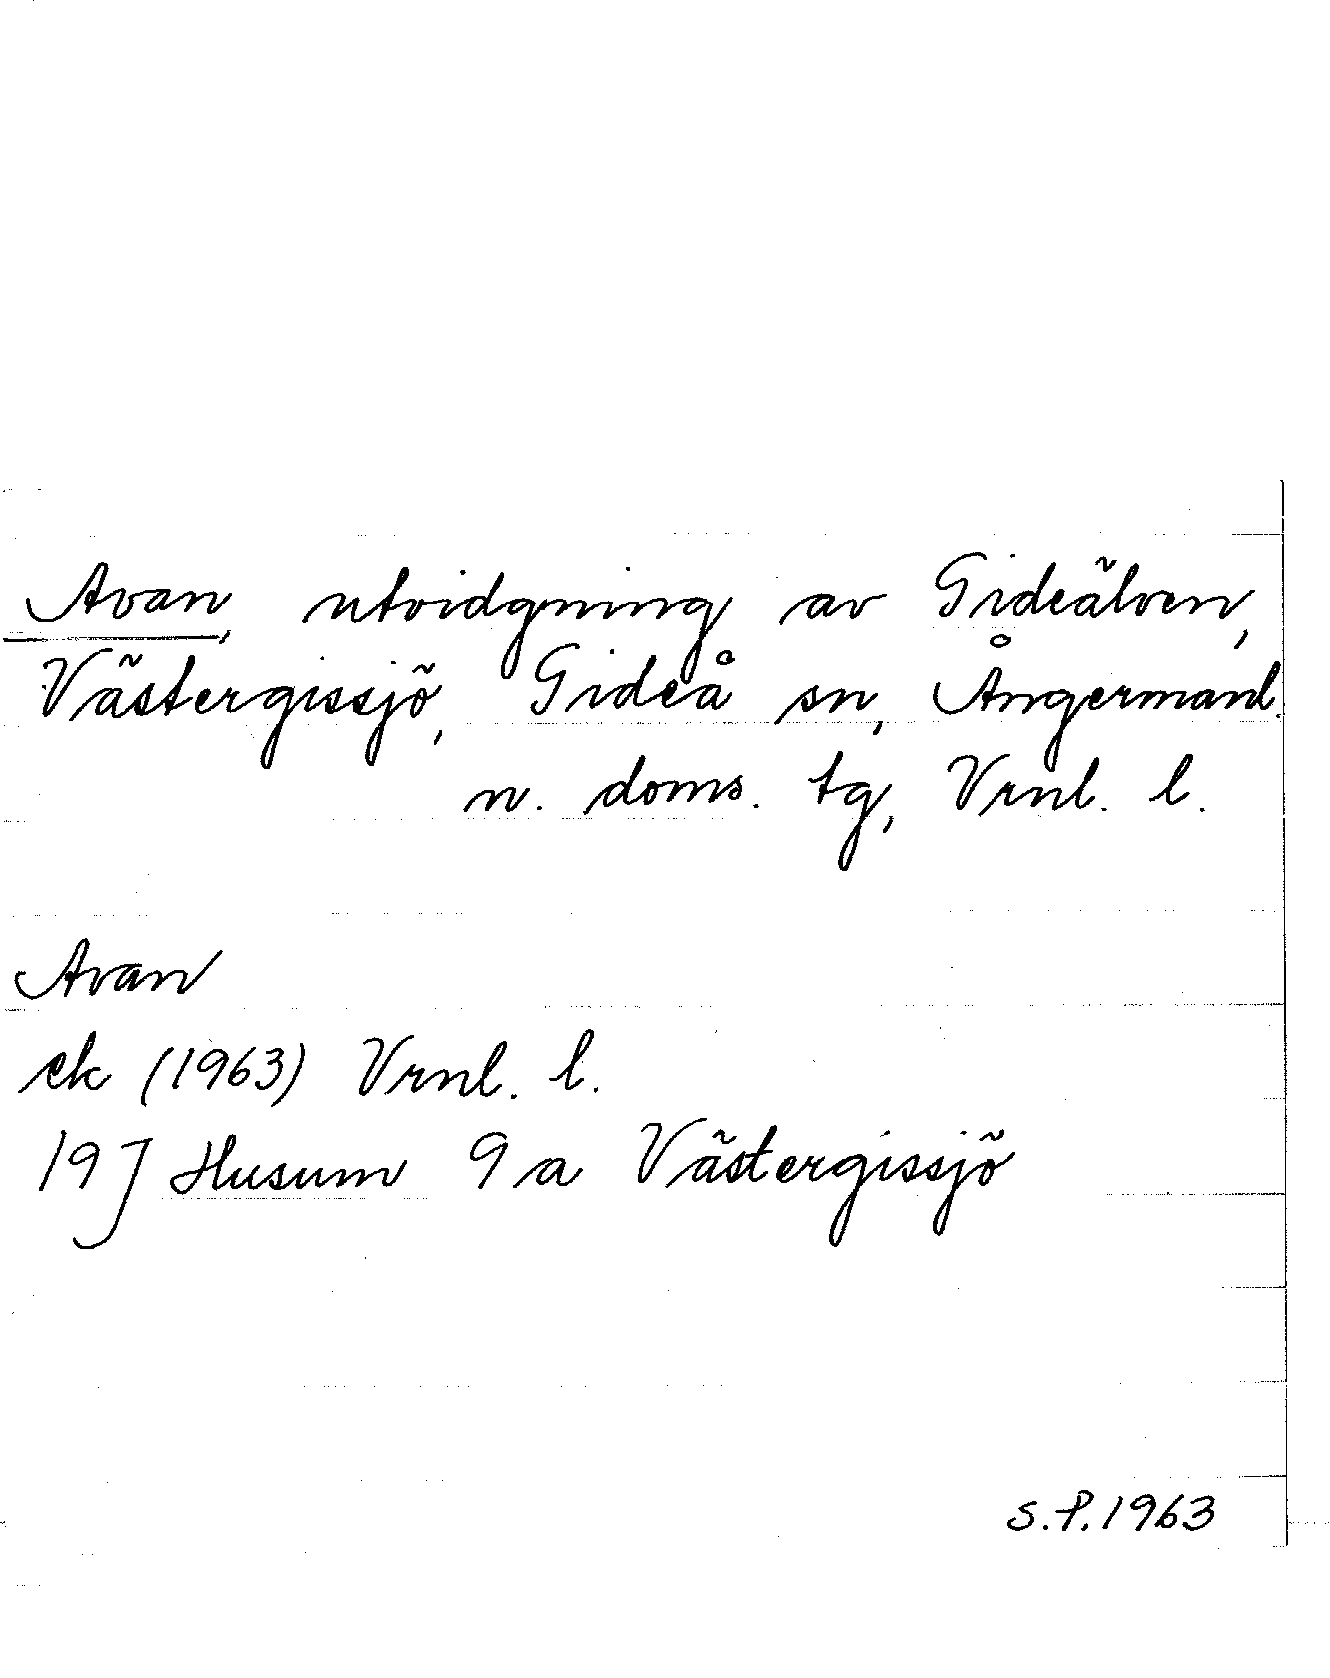 Avan, utvidgning av Gideälven,
Västergissjö, Gideå sn, Ångermanl.
n. doms. tg, Vrnl. l.
Avan
ek (1963) Vrnl. l.
19J Husum 9a Västergissjö
S.P. 1963